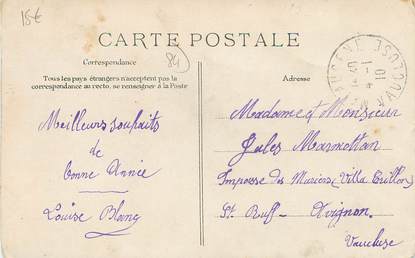 15€
CARTE POSTALE
84
Correspondance
Tous les pays étrangers n'acceptent pas la
correspondance au recto. se renseigner à la Poste
Meilleurs souhaits
de
bonne Année
Louise Blanc
Adresse
VAUCLUSE
Madame et Monsieur
Jules Marmottan
Impasse des Muriers (Villa
St. Ruff - Avignon.
Vaucluse